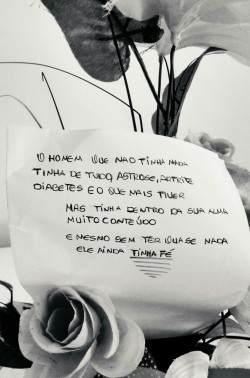 O HOMEM QUE NÃO TINHA NADA
TINHA DE TUDO, ASTROSE, ARTRITE
DIABETES E O QUE MAIS TIVER
MAS TINHA DENTRO DA SUA ALMA
MUITO CONTEÚDO
E MESMO SEM TER QUASE NADA
ELE AINDA TINHA FÉ